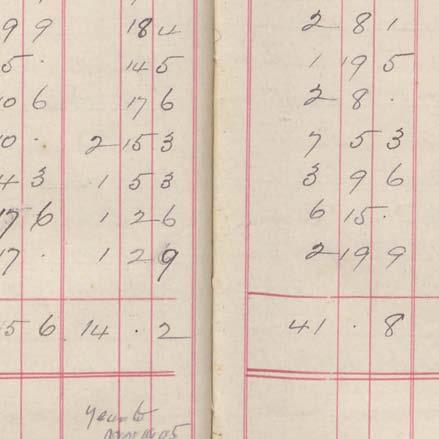 9 9 18 4 2 8 1
5 · 14 5 1 19 5
10 6 17 6 2 8 ·
10 · 2 15 3 7 5 3
4 3 1 5 3 3 9 6
17 6 1 2 6 6 15 ·
17 · 1 2 9 2 19 9
5 6 14 · 2 41 · 8
Year to